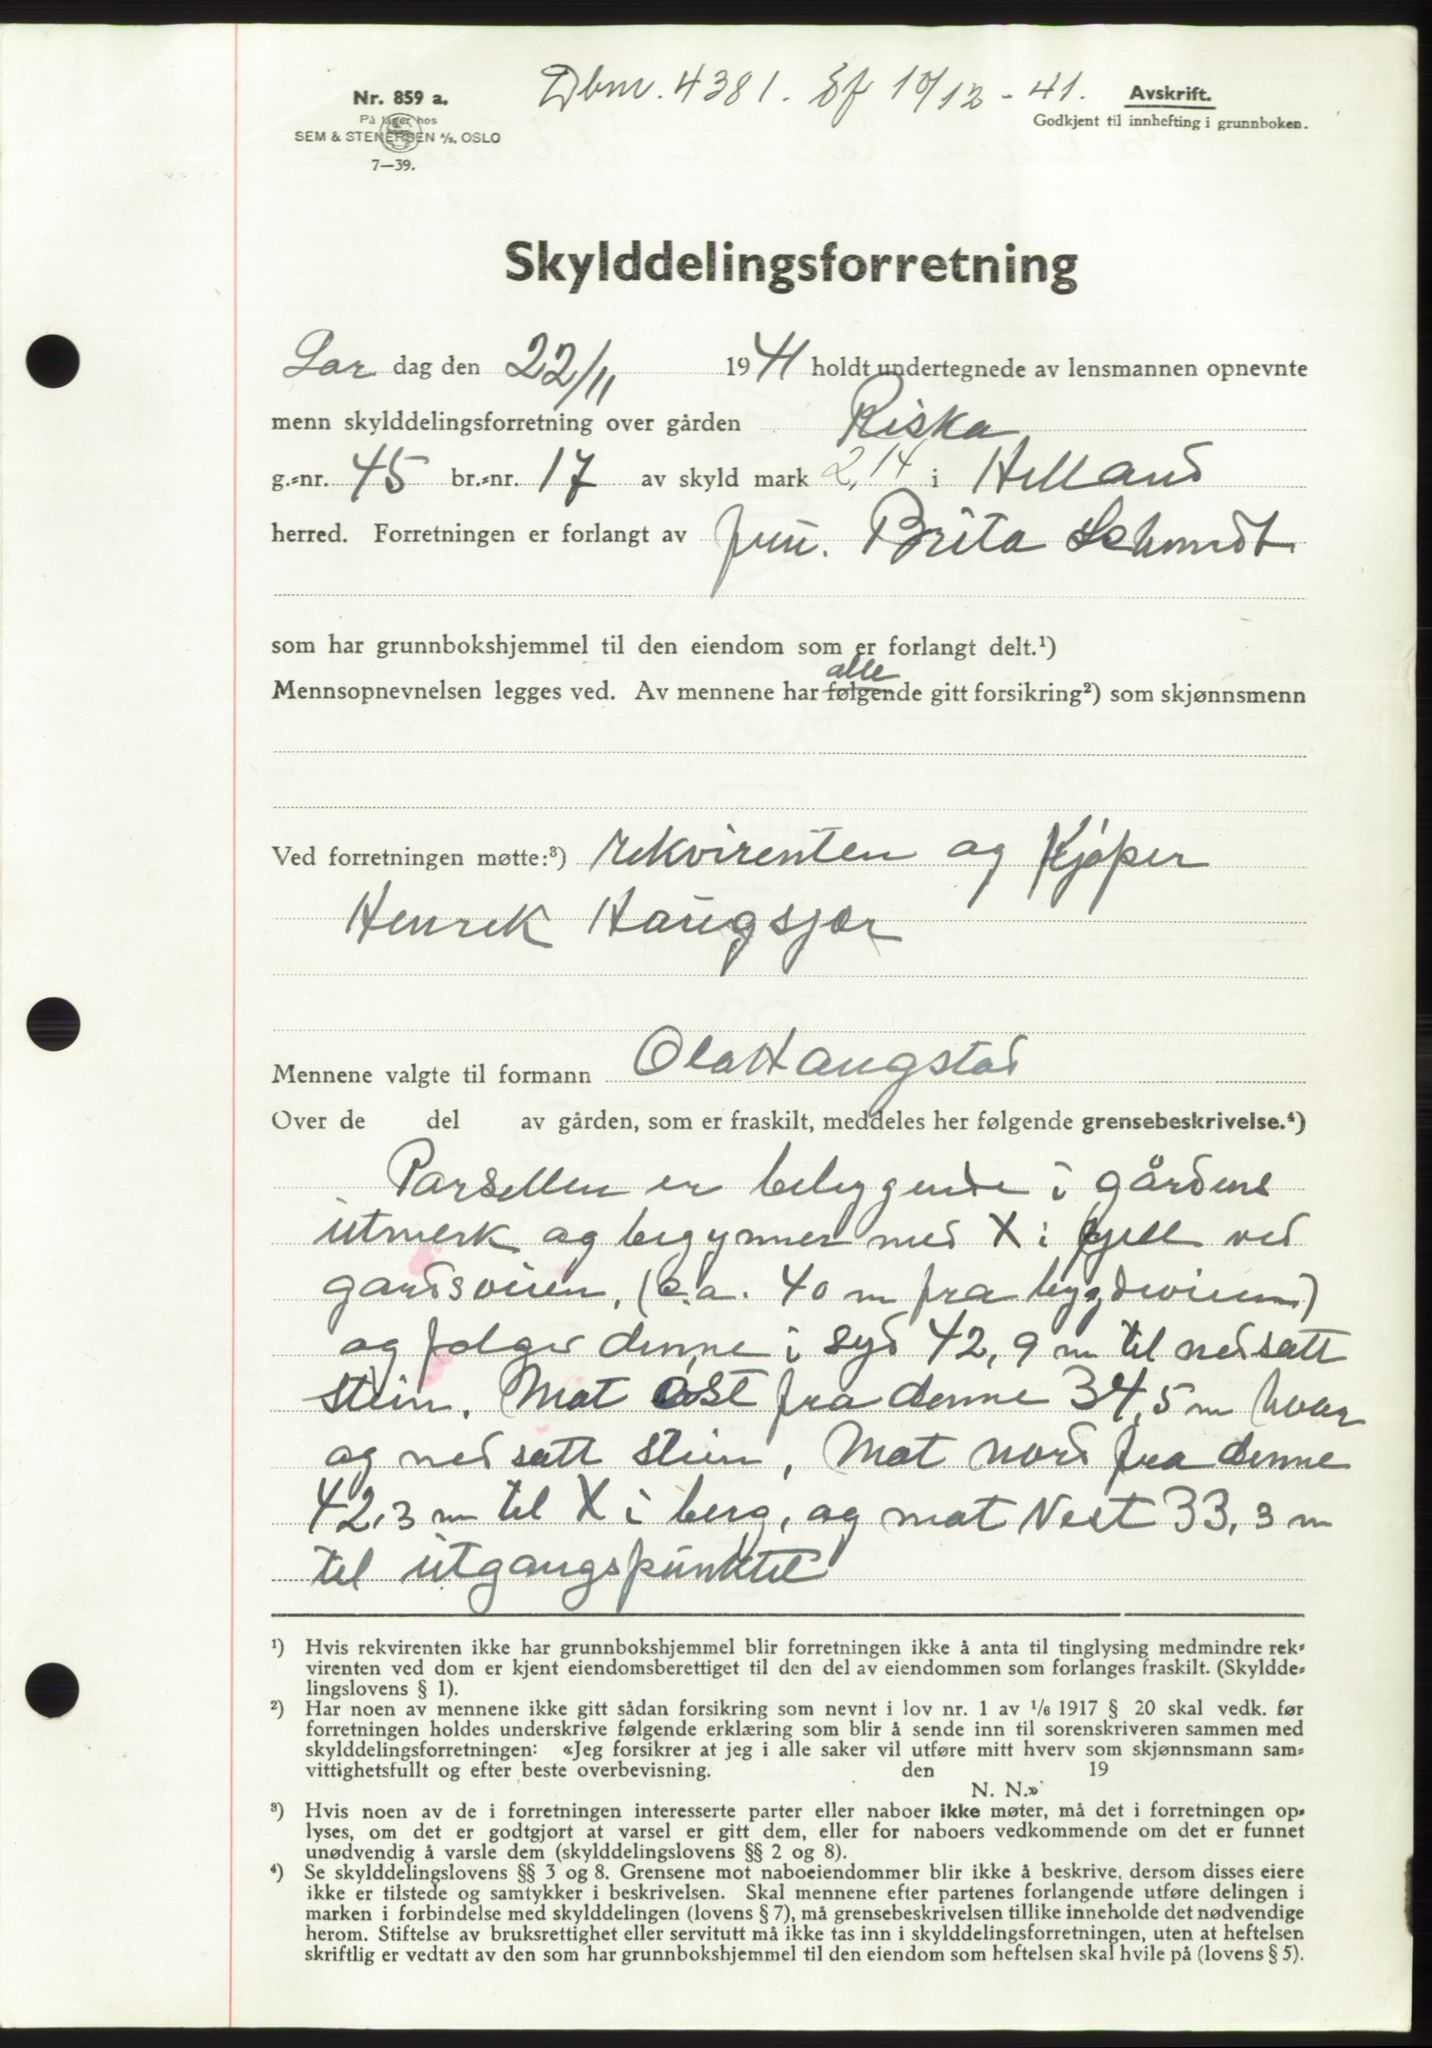 Nr. 859 a.
På lager hos
SEM & STENERSEN A/S, OSLO
7—39.
Dbnr. 4381. Ef 10/12 - 41.
Avskrift.
Godkjent til innhefting i grunnboken.
Skylddelingsforretning
Lør dag den 22/11 1941 holdt undertegnede av lensmannen opnevnte
menn skylddelingsforretning over gården Riska
g.-nr. 45 br.-nr. 17 av skyld mark 2,14 i Helland
herred. Forretningen er forlangt av fru. Brita Schmidt
som har grunnbokshjemmel til den eiendom som er forlangt delt.¹)
alle
Mennsopnevnelsen legges ved. Av mennene har følgende gitt forsikring²) som skjønnsmenn
Ved forretningen møtte:³) rekvirenten og Kjøper
Henrik Haugsjær
Mennene valgte til formann Ola Haugstad
Over de del av gården, som er fraskilt, meddeles her følgende grensebeskrivelse.⁴)
Parsellen er beliggende i gårdens
utmerk og begynner med X i fjell ved
gardsveien, (c.a. 40 m fra bygdeveien)
og følger denne i syd 42,9 m til nedsatt
stein. Mot øst fra denne 34,5 m hvor
og nedsatt stein, Mot nord fra denne
42,3 m til X i berg, og mot Vest 33,3 m
til utgangspunktet
¹) Hvis rekvirenten ikke har grunnbokshjemmel blir forretningen ikke å anta til tinglysing medmindre rek-
virenten ved dom er kjent eiendomsberettiget til den del av eiendommen som forlanges fraskilt. (Skyldde-
lingslovens § 1).
²) Har noen av mennene ikke gitt sådan forsikring som nevnt i lov nr. 1 av 1/6 1917 § 20 skal vedk. før
forretningen holdes underskrive følgende erklæring som blir å sende inn til sorenskriveren sammen med
skylddelingsforretningen: «Jeg forsikrer at jeg i alle saker vil utføre mitt hverv som skjønnsmann sam-
vittighetsfullt og efter beste overbevisning. den 19
N. N.»
³) Hvis noen av de i forretningen interesserte parter eller naboer ikke møter, må det i forretningen op-
lyses, om det er godtgjort at varsel er gitt dem, eller for naboers vedkommende om det er funnet
unødvendig å varsle dem (skylddelingslovens §§ 2 og 8).
⁴) Se skylddelingslovens §§ 3 og 8. Grensene mot naboeiendommer blir ikke å beskrive, dersom disses eiere
ikke er tilstede og samtykker i beskrivelsen. Skal mennene efter partenes forlangende utføre delingen i
marken i forbindelse med skylddelingen (lovens § 7), må grensebeskrivelsen tillike inneholde det nødvendige
herom. Stiftelse av bruksrettighet eller servitutt må ikke tas inn i skylddelingsforretningen, uten at heftelsen
skriftlig er vedtatt av den som har grunnbokshjemmel til den eiendom som heftelsen skal hvile på (lovens § 5).